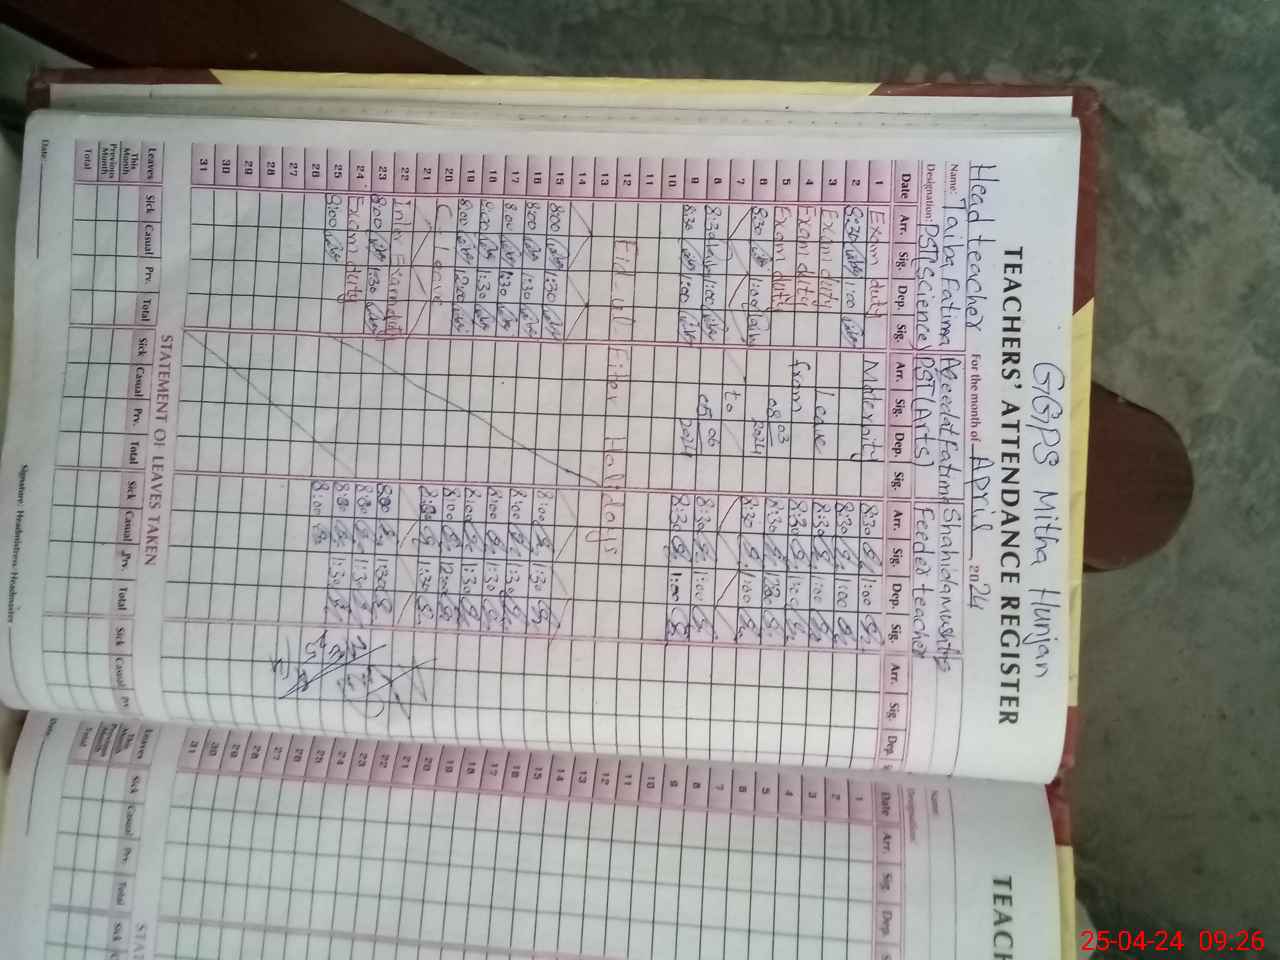 GGPS Mitha Hunjan
TEACHERS' ATTENDANCE REGISTER
Head teacher For the month of April 2024
Name: Taiba Fatima Aqeedat Fatima Shahida mushtaq
Designation: PST(Science) PST(Arts) Feeder teacher
Date Arr. Sig. Dep. Sig. Arr. Sig. Dep. Sig. Arr. Sig. Dep. Sig. Arr. Sig. Dep.
1 Exam duty Maternity 8:30 1:00
2 8:30 1:00 8:30 1:00
3 Exam duty Leave 8:30 1:00
4 Exam duty from 8:30 1:00
5 Exam duty 08-03-2024 8:30 12:30
6 8:30 1:00 8:30 1:00
7 to
8 8:30 1:00 05-06-2024 8:30 1:00
9 8:30 1:00 8:30 1:00
10
11
12 Eid-ul Fiter Holidays
13
14
15 8:00 1:30 8:00 1:30
16 8:00 1:30 8:00 1:30
17 8:00 1:30 8:00 1:30
18 8:00 1:30 8:00 1:30
19 8:00 12:00 8:00 12:00
20 C-Leave 1:30
21
22 Inter Exam duty 1:30
23 8:00 1:30 8:00 1:30
24 Exam duty 8:00 1:30
25 9:00 8:00
26
27
28
29
30
31
STATEMENT OF LEAVES TAKEN
Leaves Sick Casual Prv. Total Sick Casual Prv. Total Sick Casual Prv. Total Sick Casual Prv.
This Month
Previous Month
Total
Date: Signature: Headmistress/Headmaster
TEACH
Name:
Designation:
Date Arr. Sig. Dep. Sig.
1
2
3
4
5
6
7
8
9
10
11
12
13
14
15
16
17
18
19
20
21
22
23
24
25
26
27
28
29
30
31
STAT
Leaves Sick Casual Prv. Total Sick
This Month
Previous Month
Total
Date:
25-04-24 09:26